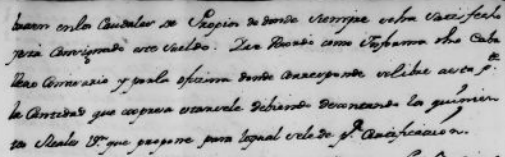 buen en los Caudales de Propios de donde siempre se ha satisfecho
para Consignado este Sueldo. De acuerdo como Informa dho Caba
llero Comisario y por la ofizina donde Corresponde se libre a esta pte
la Cantidad que expresa estarsele debiendo descontando los quinien
tos Reales Vn que propone para lo qual se le dé pr Certificacion.